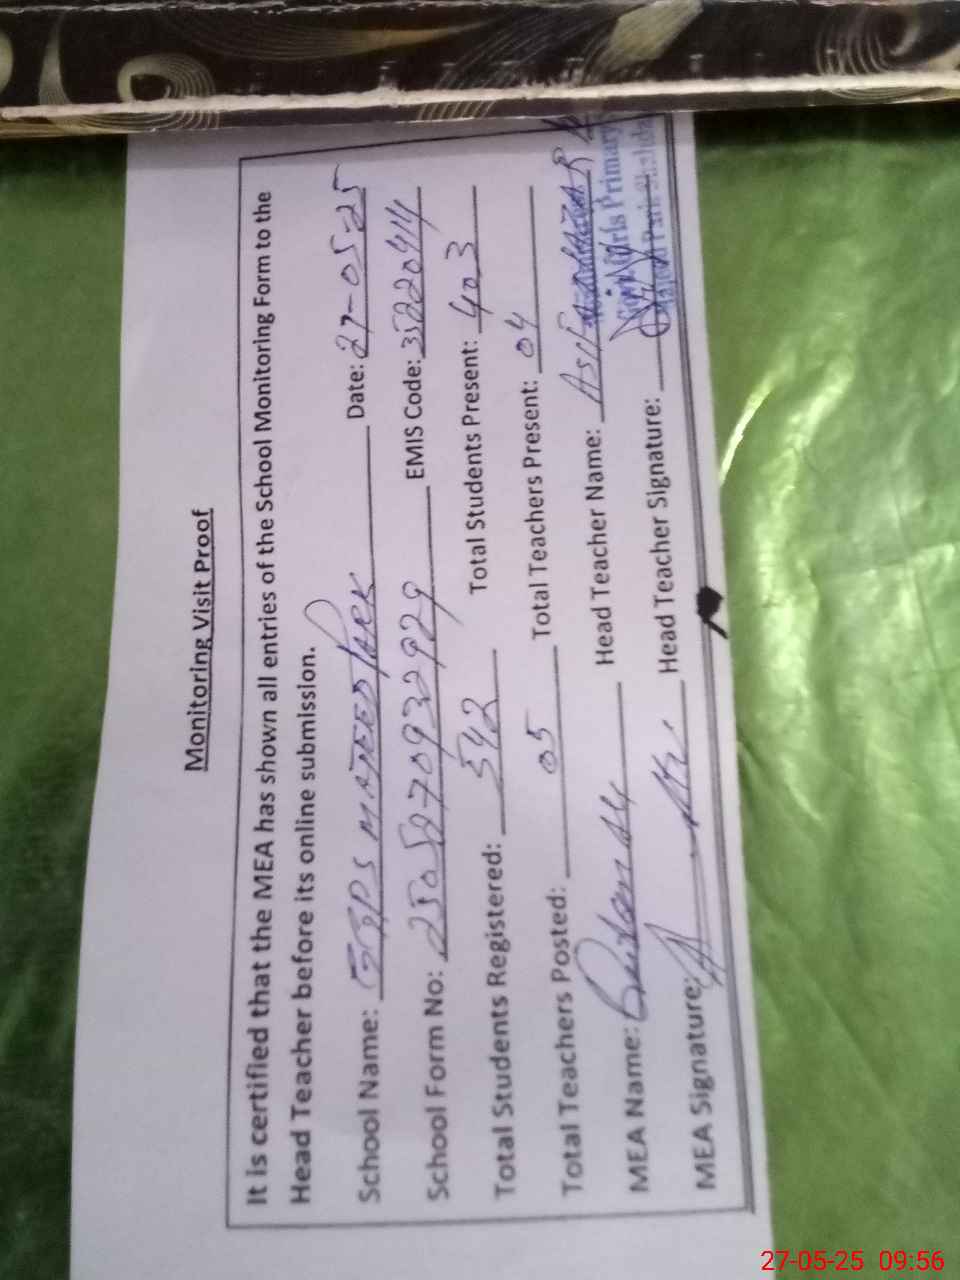 Monitoring Visit Proof
It is certified that the MEA has shown all entries of the School Monitoring Form to the
Head Teacher before its online submission.
School Name: GGPS MAJEED PARK Date: 27-05-25
School Form No: 2505270932929 EMIS Code: 35220414
Total Students Registered: 542 Total Students Present: 403
Total Teachers Posted: 05 Total Teachers Present: 04
MEA Name: Head Teacher Name:
Girls Primary
MEA Signature: Head Teacher Signature:
Majeed Park
27-05-25 09:56